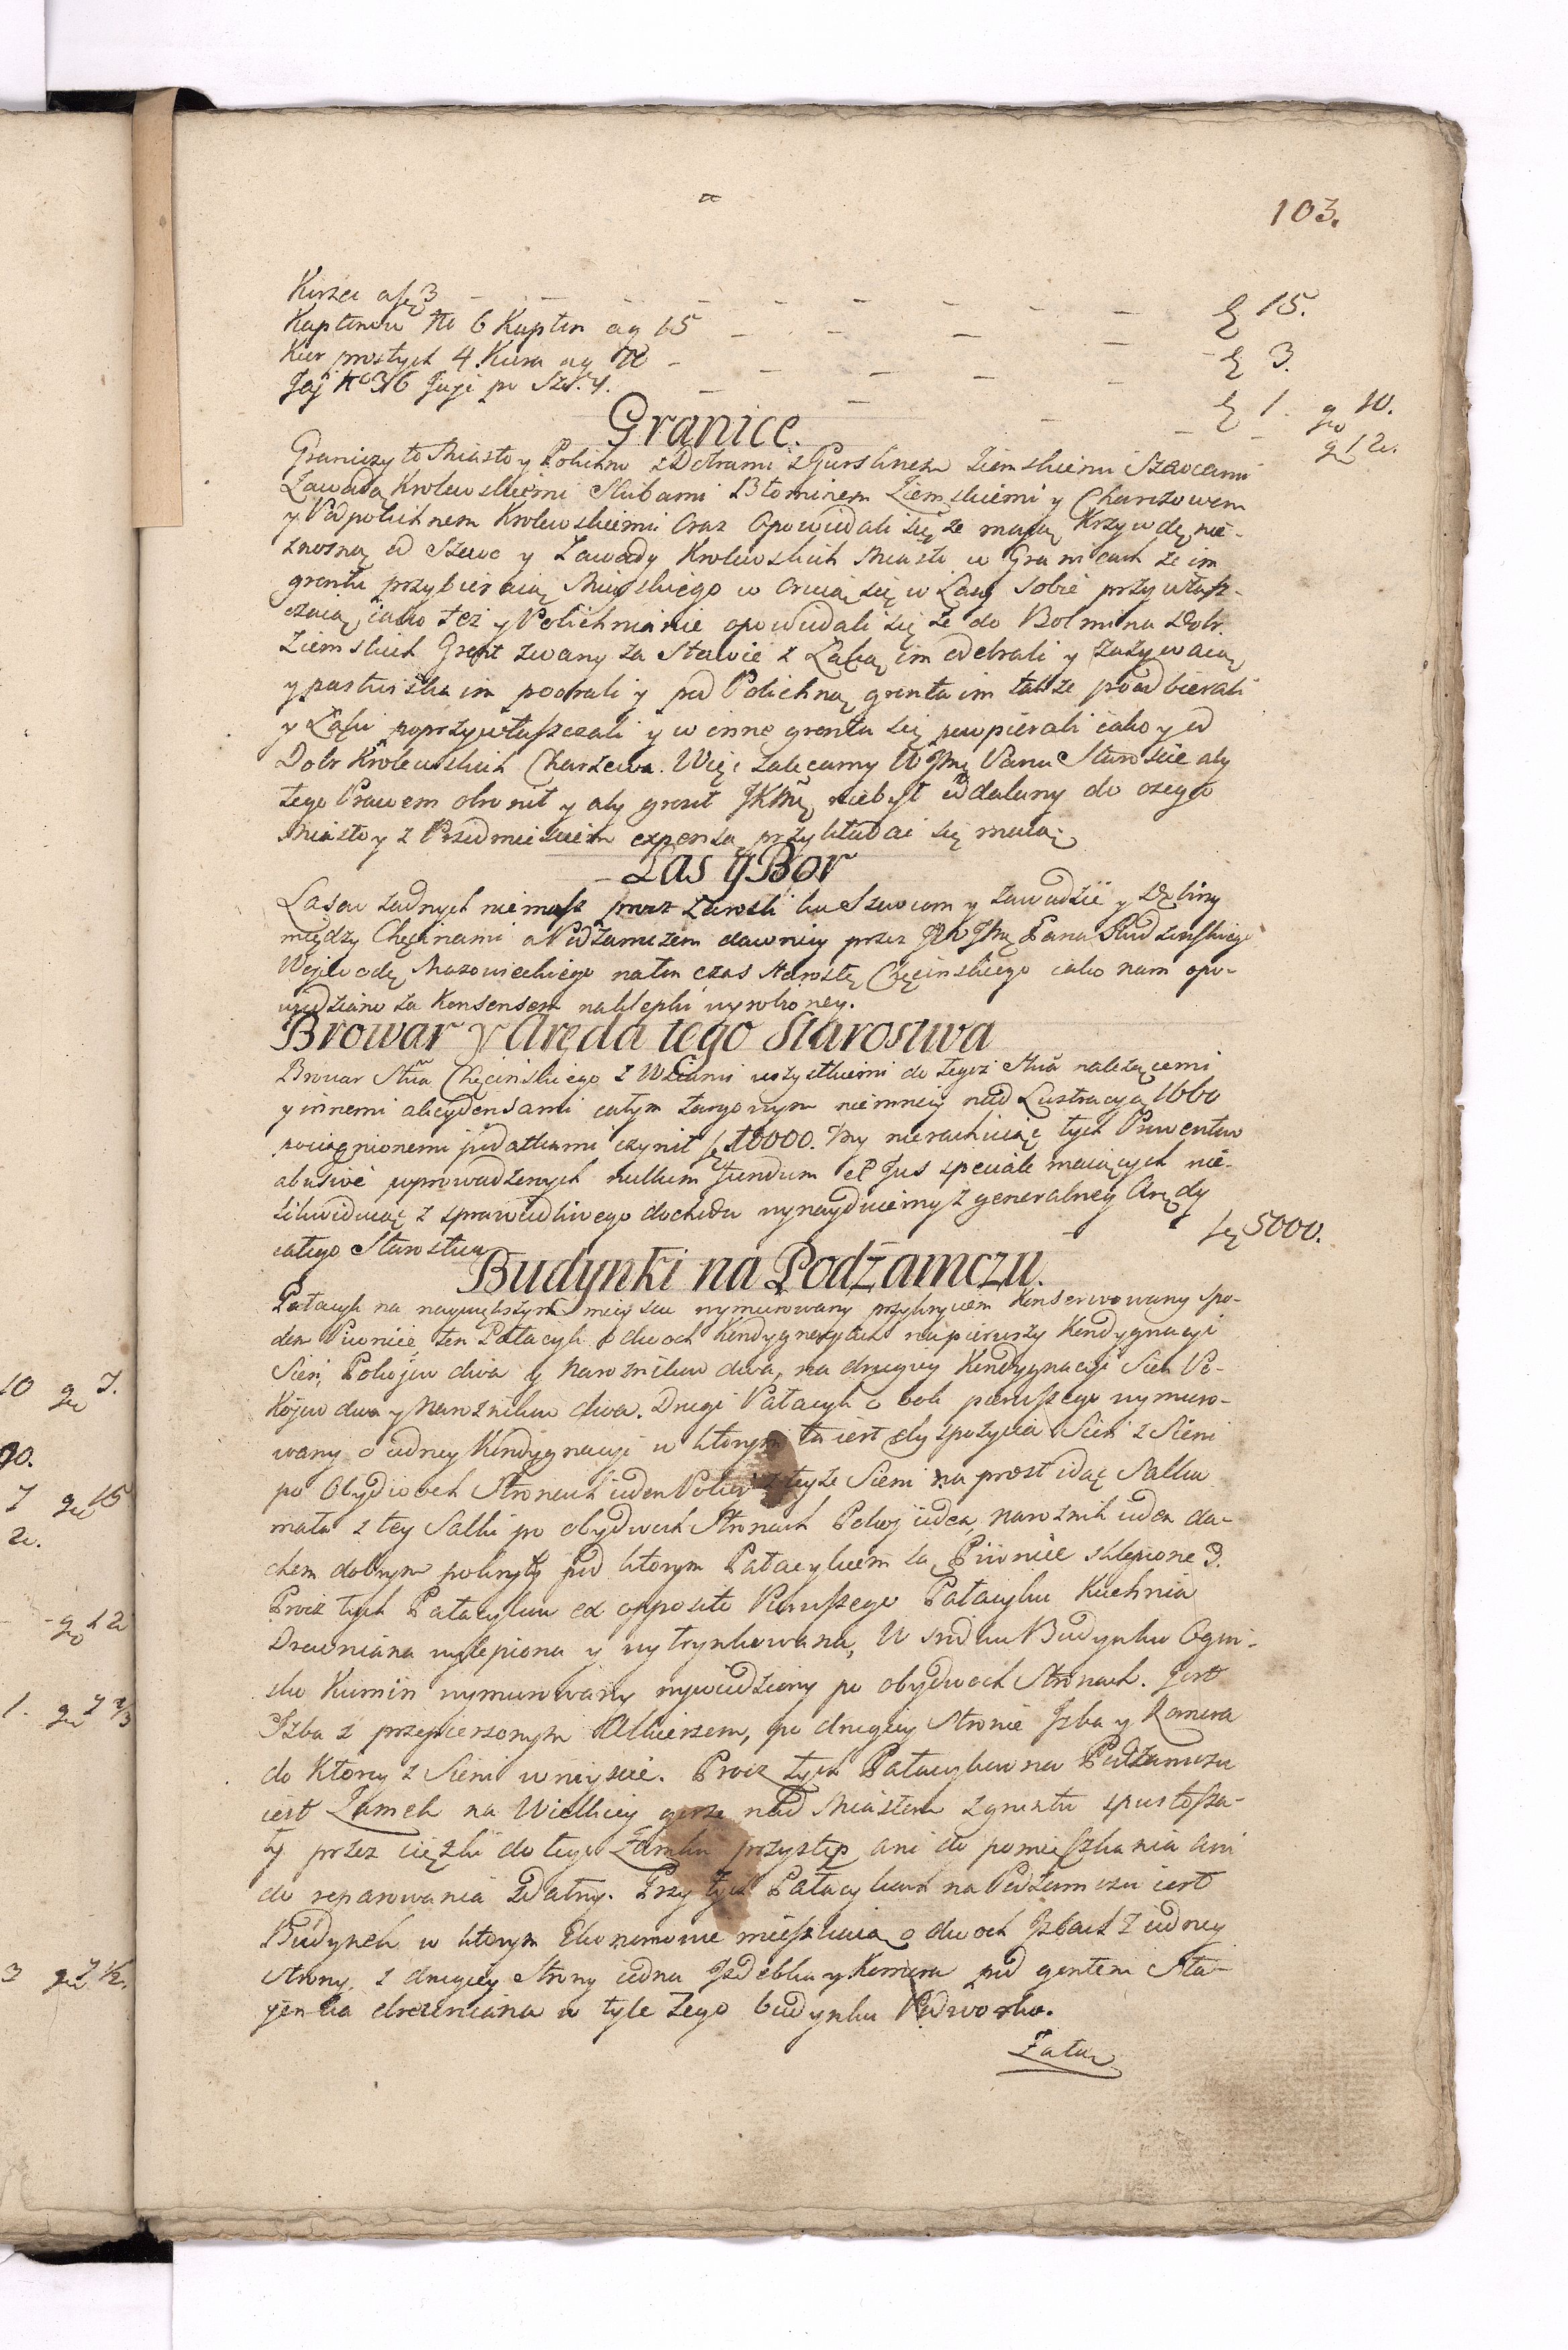 103.
Kurzei a fl 3 – – – – – – fl 15.
Kapłonów No 6 Kapłon a g 15 – – – – fl 3.
Kur prostych 4 Kura a g 10 – – – – fl 1. gr 10.
Jaj No 36 Jaje po Szl. 1. – – – – gr 12.
Granice.
Graniczy to Miasto y Polichno z Dobrami z Gursknem Ziemskiemi Szewcami
Zawadą Krolewskiemi Skibami Błominem Ziemskiemi y Charzowem
y Podpolichnem Krolewskiemi Oraz Opowiedali się że maią Krzywdę nie-
znosną od Szewc y Zawady Krolewskich Miasto w Granicach że im
grontu przybieraią Mieyskiego w oruią się w Łąki sobie przywłasz-
czaią, iako też y Polichnianie opowiedali się że do Bolmina Dobr
Ziemskich Gront zwany za Stawie z Łąką im odebrali y zażywaią
y pastwiska im pobrali y pod Polichną gronta im także poodbierali
y Łąki poprzywłaszczali y w inne gronta się powpierali iako y od
Dobr Krolewskich Charzewa. Więc zalecamy WJmę Panu Staroscie aby
tego Prawem obronił y aby gront JKMę niebył oddalany do czego
Miasto y z Przedmiesciem expensą przykładać się maią
Las y Bor
Lasow żadnych niemasz procz Zarosli ku Szewcom y Zawadzie y Dębiny
między Chęcinami a Podzamczem dawniey przez JWJmę Pana Rudzinskiego
Wojewodę Mazowieckiego na ten czas Starostę Chęcinskiego iako nam opo-
wiedziano za Konsensem na klepki wyrobioney.
Browar y Aręda tego Starostwa
Browar Sttwa Chęcinskiego z Wsiami wszystkiemi do tegoż Sttwa należącemi
y innemi akcydensami całym targowym niemniey nad Lustracyą 1660
pociągnionemi podatkami czynił fl 10000. My nierachuiąc tych Prowentow
abusive wprowadzonych nullum fundum et Jus speciale maiących nie-
likwiduiąc z sprawiedliwego dochodu wynaydujemy z generalney Arędy
całego Starostwa fl 5000.
Budynki na Podzamczu.
Pałacyk na naywyższym mieyscu wymurowany przykryciem konserwowany spo-
dem Piwnice, ten Pałacyk o dwoch Kondygnacyach na pierwszy Kondygnacyi
Sien, Pokojow dwa y Narożnikow dwa, na drugiey Kondygnacyi Sien Po-
kojow dwa y Narożnikow dwa. Drugi Pałacyk o bok pierwszego wymuro-
wany o iedney Kondygnacyi w ktorym ta iest dyspozycia Sien z Sieni
po Obydwoch Stronach ieden Pokoy z teyże Sieni na prost idąc Salka
mała z tey Salki po obydwoch Stronach Pokoj ieden, narożnik ieden da-
chem dobrym pokryty pod ktorym Pałacykiem są Piwnice sklepione 3.
Procz tych Pałacykow ex opposito Pierwszego Pałacyku Kuchnia
Drewniana wylepiona y wytrynkowana, W srodku Budynku Ogni-
sko Kumin wymurowany wywiedziony po obydwoch Stronach. Jest
Izba z przepierzonym Alkierzem, po drugiey Stronie Izba y Komora
do Ktorey z Sieni wniyscie. Procz tych Pałacykow na Podzamczu
iest Zamek na Wielkiey gorze nad Miastem z gruntu spustosza-
ły przez ciężki do tego Zamku przystęp ani do pomieszkania ani
do reparowania zdatny. Przy tych Pałacykach na Podzamczu iest
Budynek w ktorym Ekonomowie mieszkaią o dwoch Izbach z iedney
strony, z drugiey strony iedna Izdebka y Komora pod gontem Sta-
jenka drewniana w tyle tego budynku Podworko.
Zatur
10 gr 7.
90.
7 gr 15
2.
gr 12
1. gr 7 2/3
3 gr 7 ½.